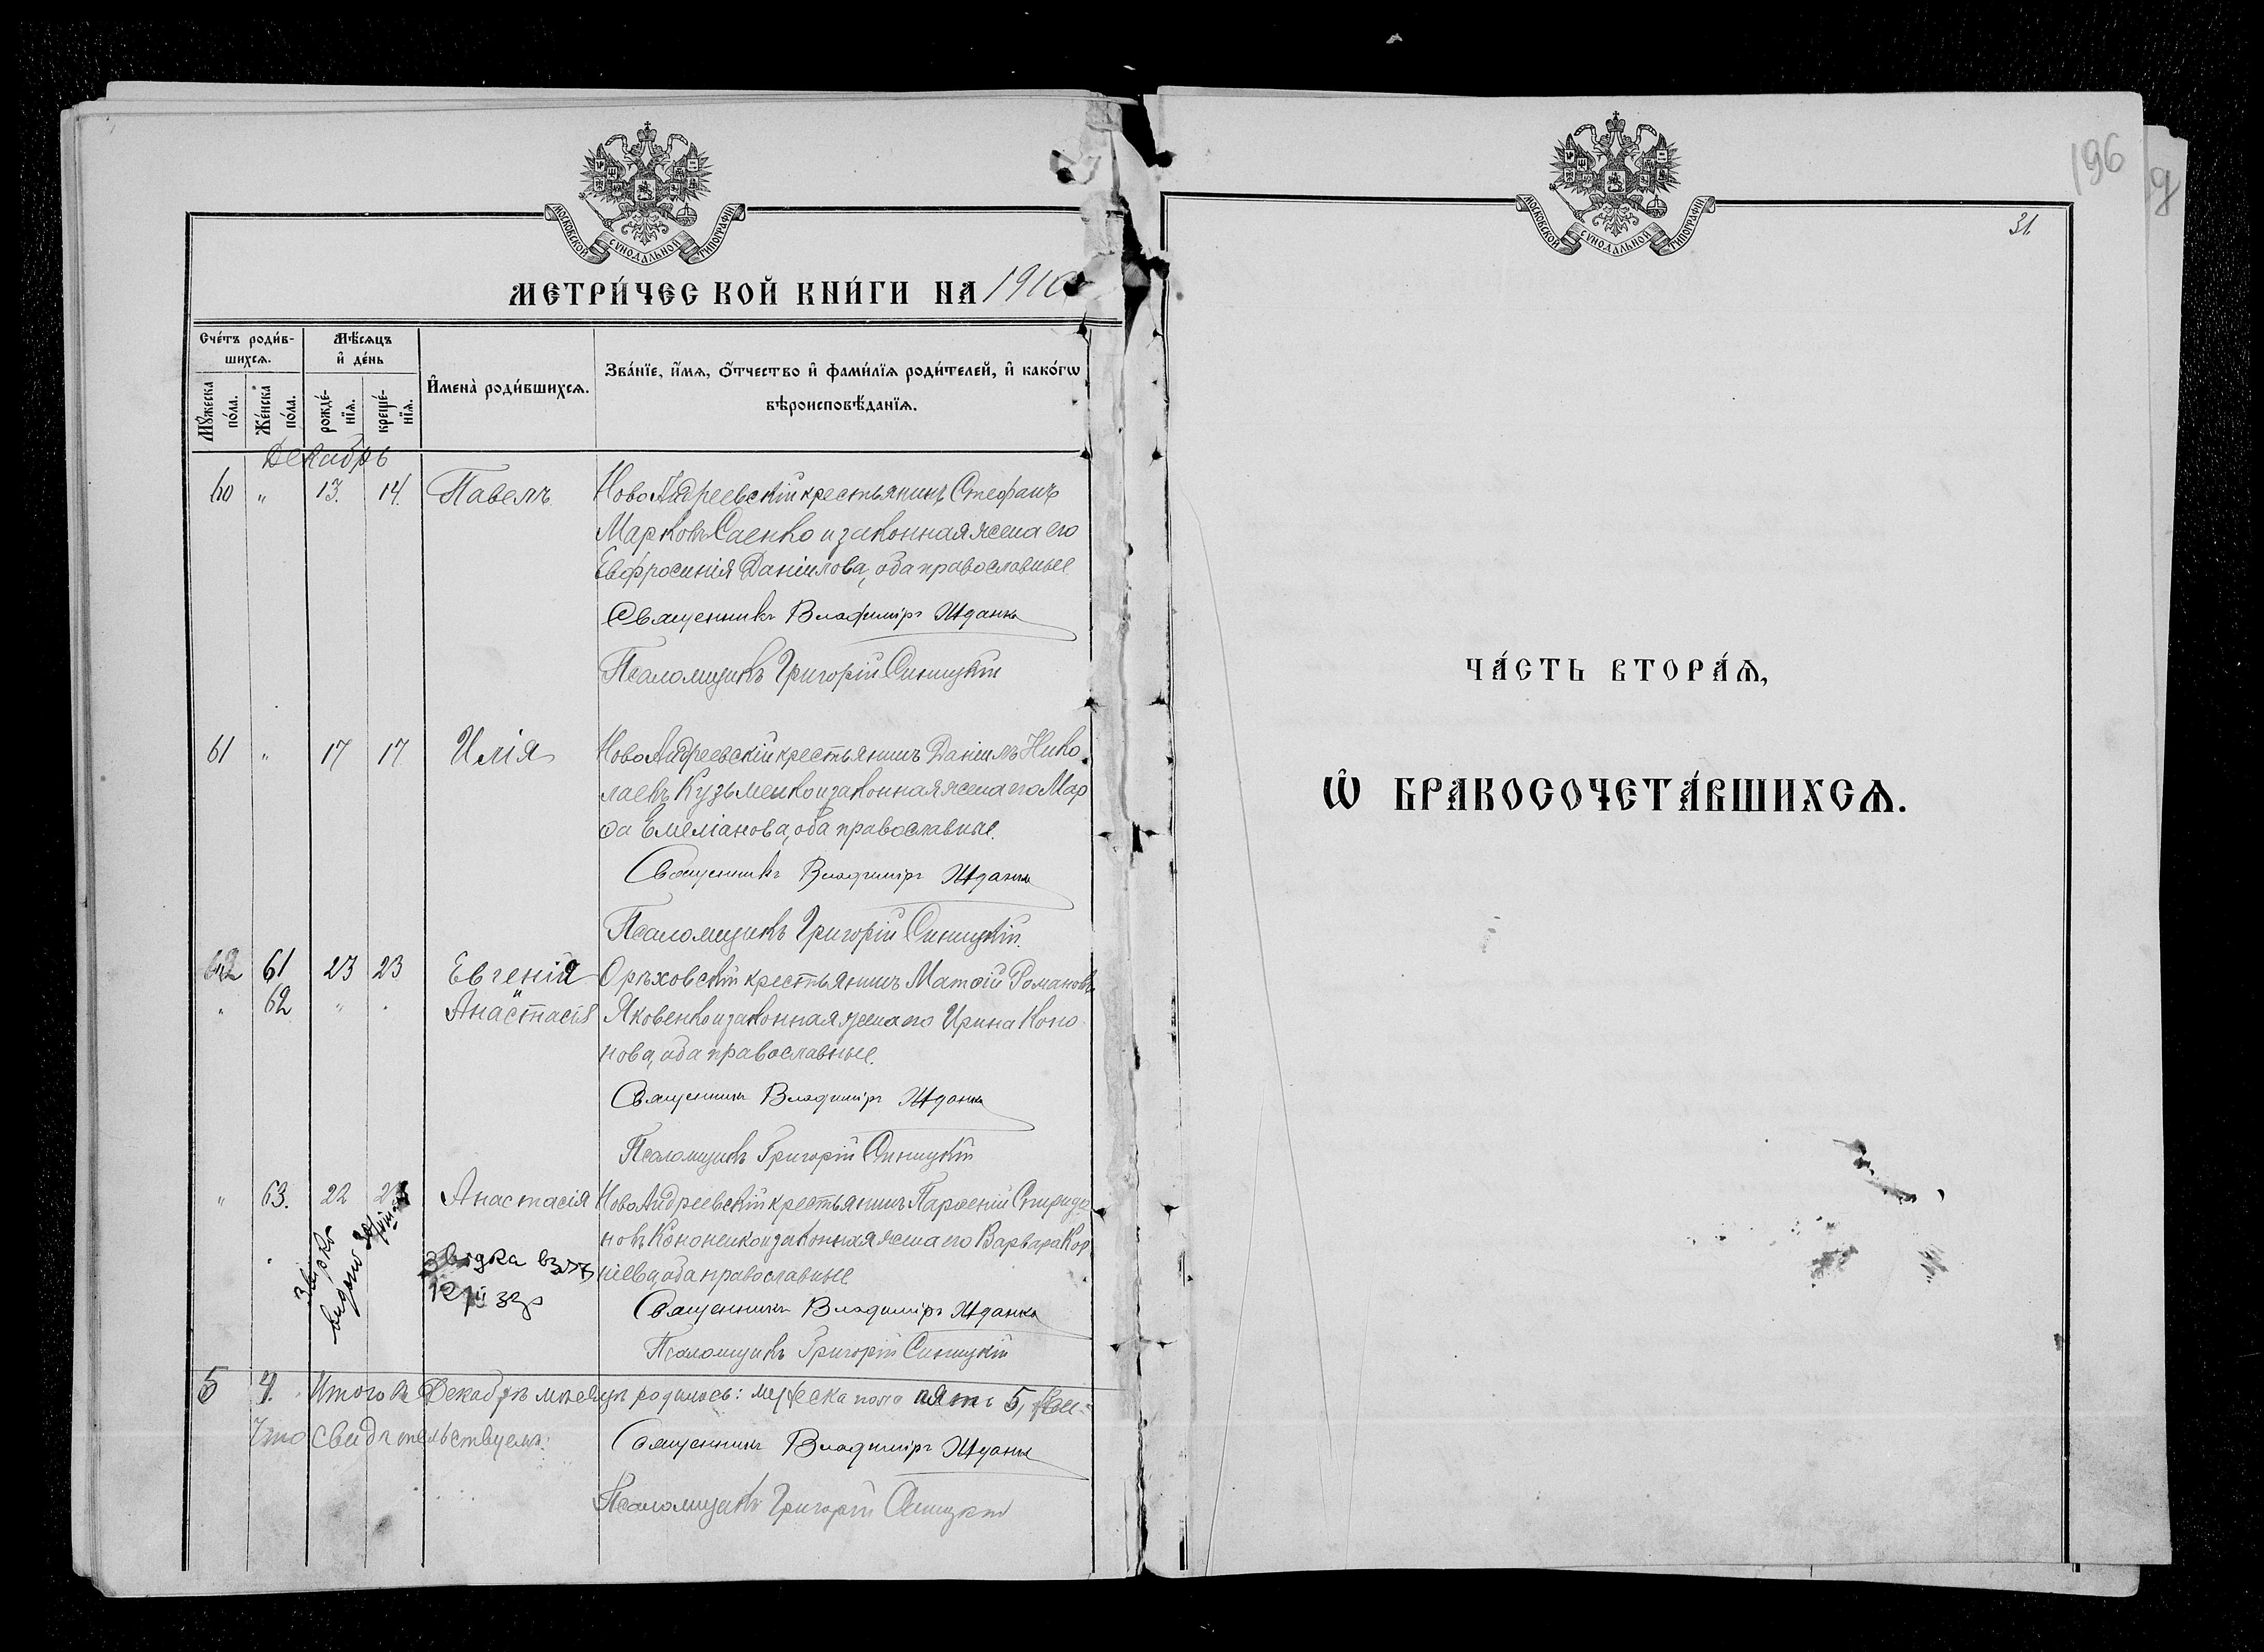 МОСКОВСКОЙ СѴНОДАЛЬНОЙ ТИПОГРАФІИ
МЕТРИ́ЧЕСКОЙ КНИ́ГИ НА 1910
Сче́тъ роди́в-
шихсѧ.
Мѣ́сѧцъ
и҆ де́нь
И҆мена̀ роди́вшихсѧ.
Зва́нїе, и҆́мѧ, ѻ҆́тчество и҆ фами́лїѧ роди́телей, и҆ како́гѡ
вѣроисповѣ́данїѧ.
Мꙋ́жеска
по́ла.
Же́нска
по́ла.
рожде́-
нїѧ.
креще́-
нїѧ.
Декабрь
60 „ 13. 14. Павелъ Ново Андреевскій крестьянинъ Стефанъ
Марковъ Саенко и законная жена его
Евфросинія Даніилова, оба православные
Священникъ Владиміръ Жданко
Псаломщикъ Григорій Синицкій
61 „ 17 17 Илія Ново Андреевскій крестьянинъ Даніилъ Нико
лаевъ Кузьменко и законная жена его Мар
ѳа Емеліанова, оба православные.
Священникъ Владиміръ Жданко
Псаломщикъ Григорій Синицкій.
61 23 23 Евгенія Орѣховскій крестьянинъ Матѳій Романовъ
и
„ 62 „ „ Анастасія Яковенко и законная жена его Ирина Коно
нова, оба православные.
Священникъ Владиміръ Жданко
Псаломщикъ Григорій Синицкій
„ 63. 22 23 Анастасія Ново Андреевскій крестьянинъ Парѳеній Спиридо
новъ Кононенко и законная жена его Варвара Кор
ніева, оба православные
Священникъ Владиміръ Жданко
Псаломщикъ Григорій Синицкій
5 4. Итого въ Декабрѣ мѣсяцѣ родилось: мужеска пола пять 5, жен-
Что свидѣтельствуемъ:
Священникъ Владиміръ Жданко
Псаломщикъ Григорій Синицкій
МОСКОВСКОЙ СѴНОДАЛЬНОЙ ТИПОГРАФІИ
196
31.
ЧА́СТЬ ВТОРА́Ѧ,
Ѡ҆ БРАКОСОЧЕТА́ВШИХСѦ.